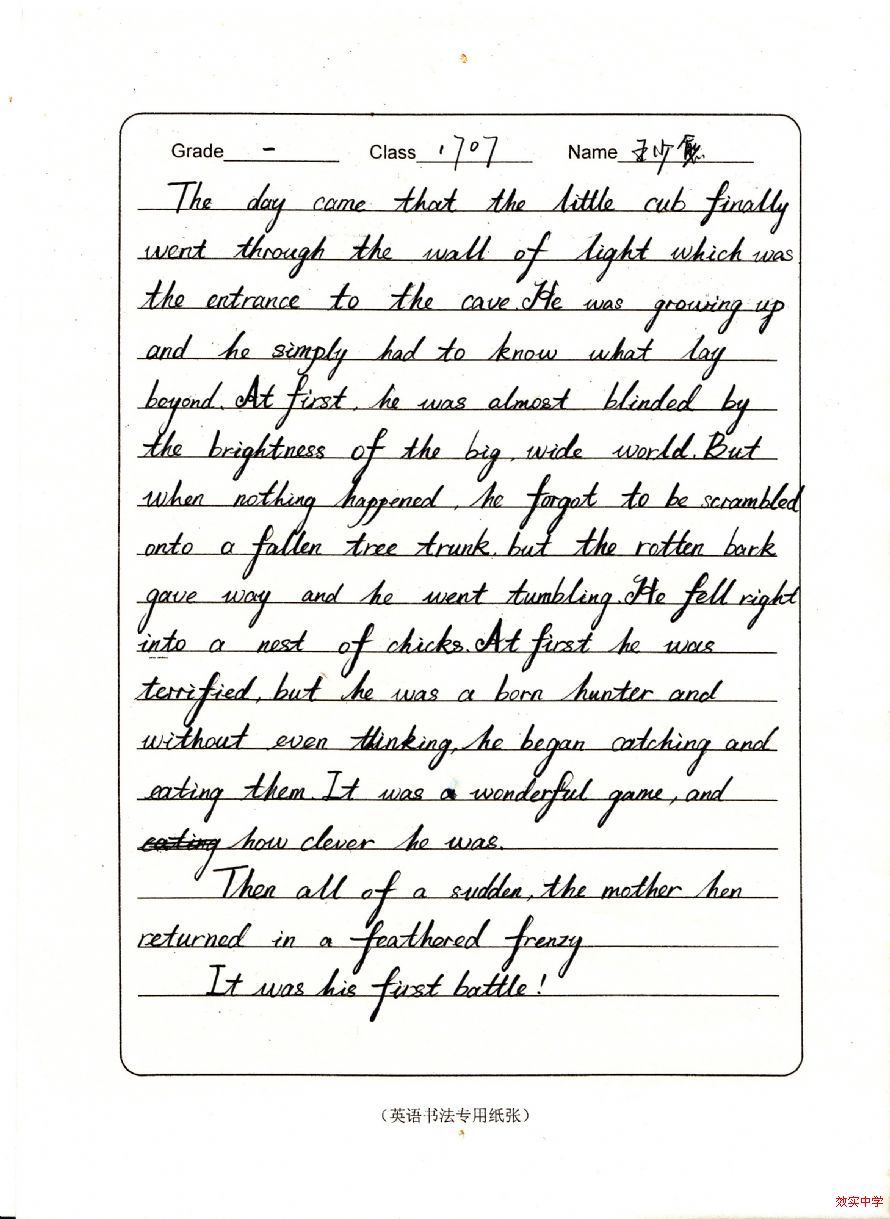 Grade 一 Class 1707 Name 王
The day came that the little cub finally
went through the wall of light which was
the entrance to the cave. He was growing up
and he simply had to know what lay
beyond. At first, he was almost blinded by
the brightness of the big, wide world. But
when nothing happened, he forgot to be scrambled
onto a fallen tree trunk, but the rotten bark
gave way and he went tumbling. He fell right
into a nest of chicks. At first he was
terrified, but he was a born hunter and
without even thinking, he began catching and
eating them. It was a wonderful game, and
eating how clever he was.
Then all of a sudden, the mother hen
returned in a feathered frenzy
It was his first battle!
（英语书法专用纸张）
效实中学